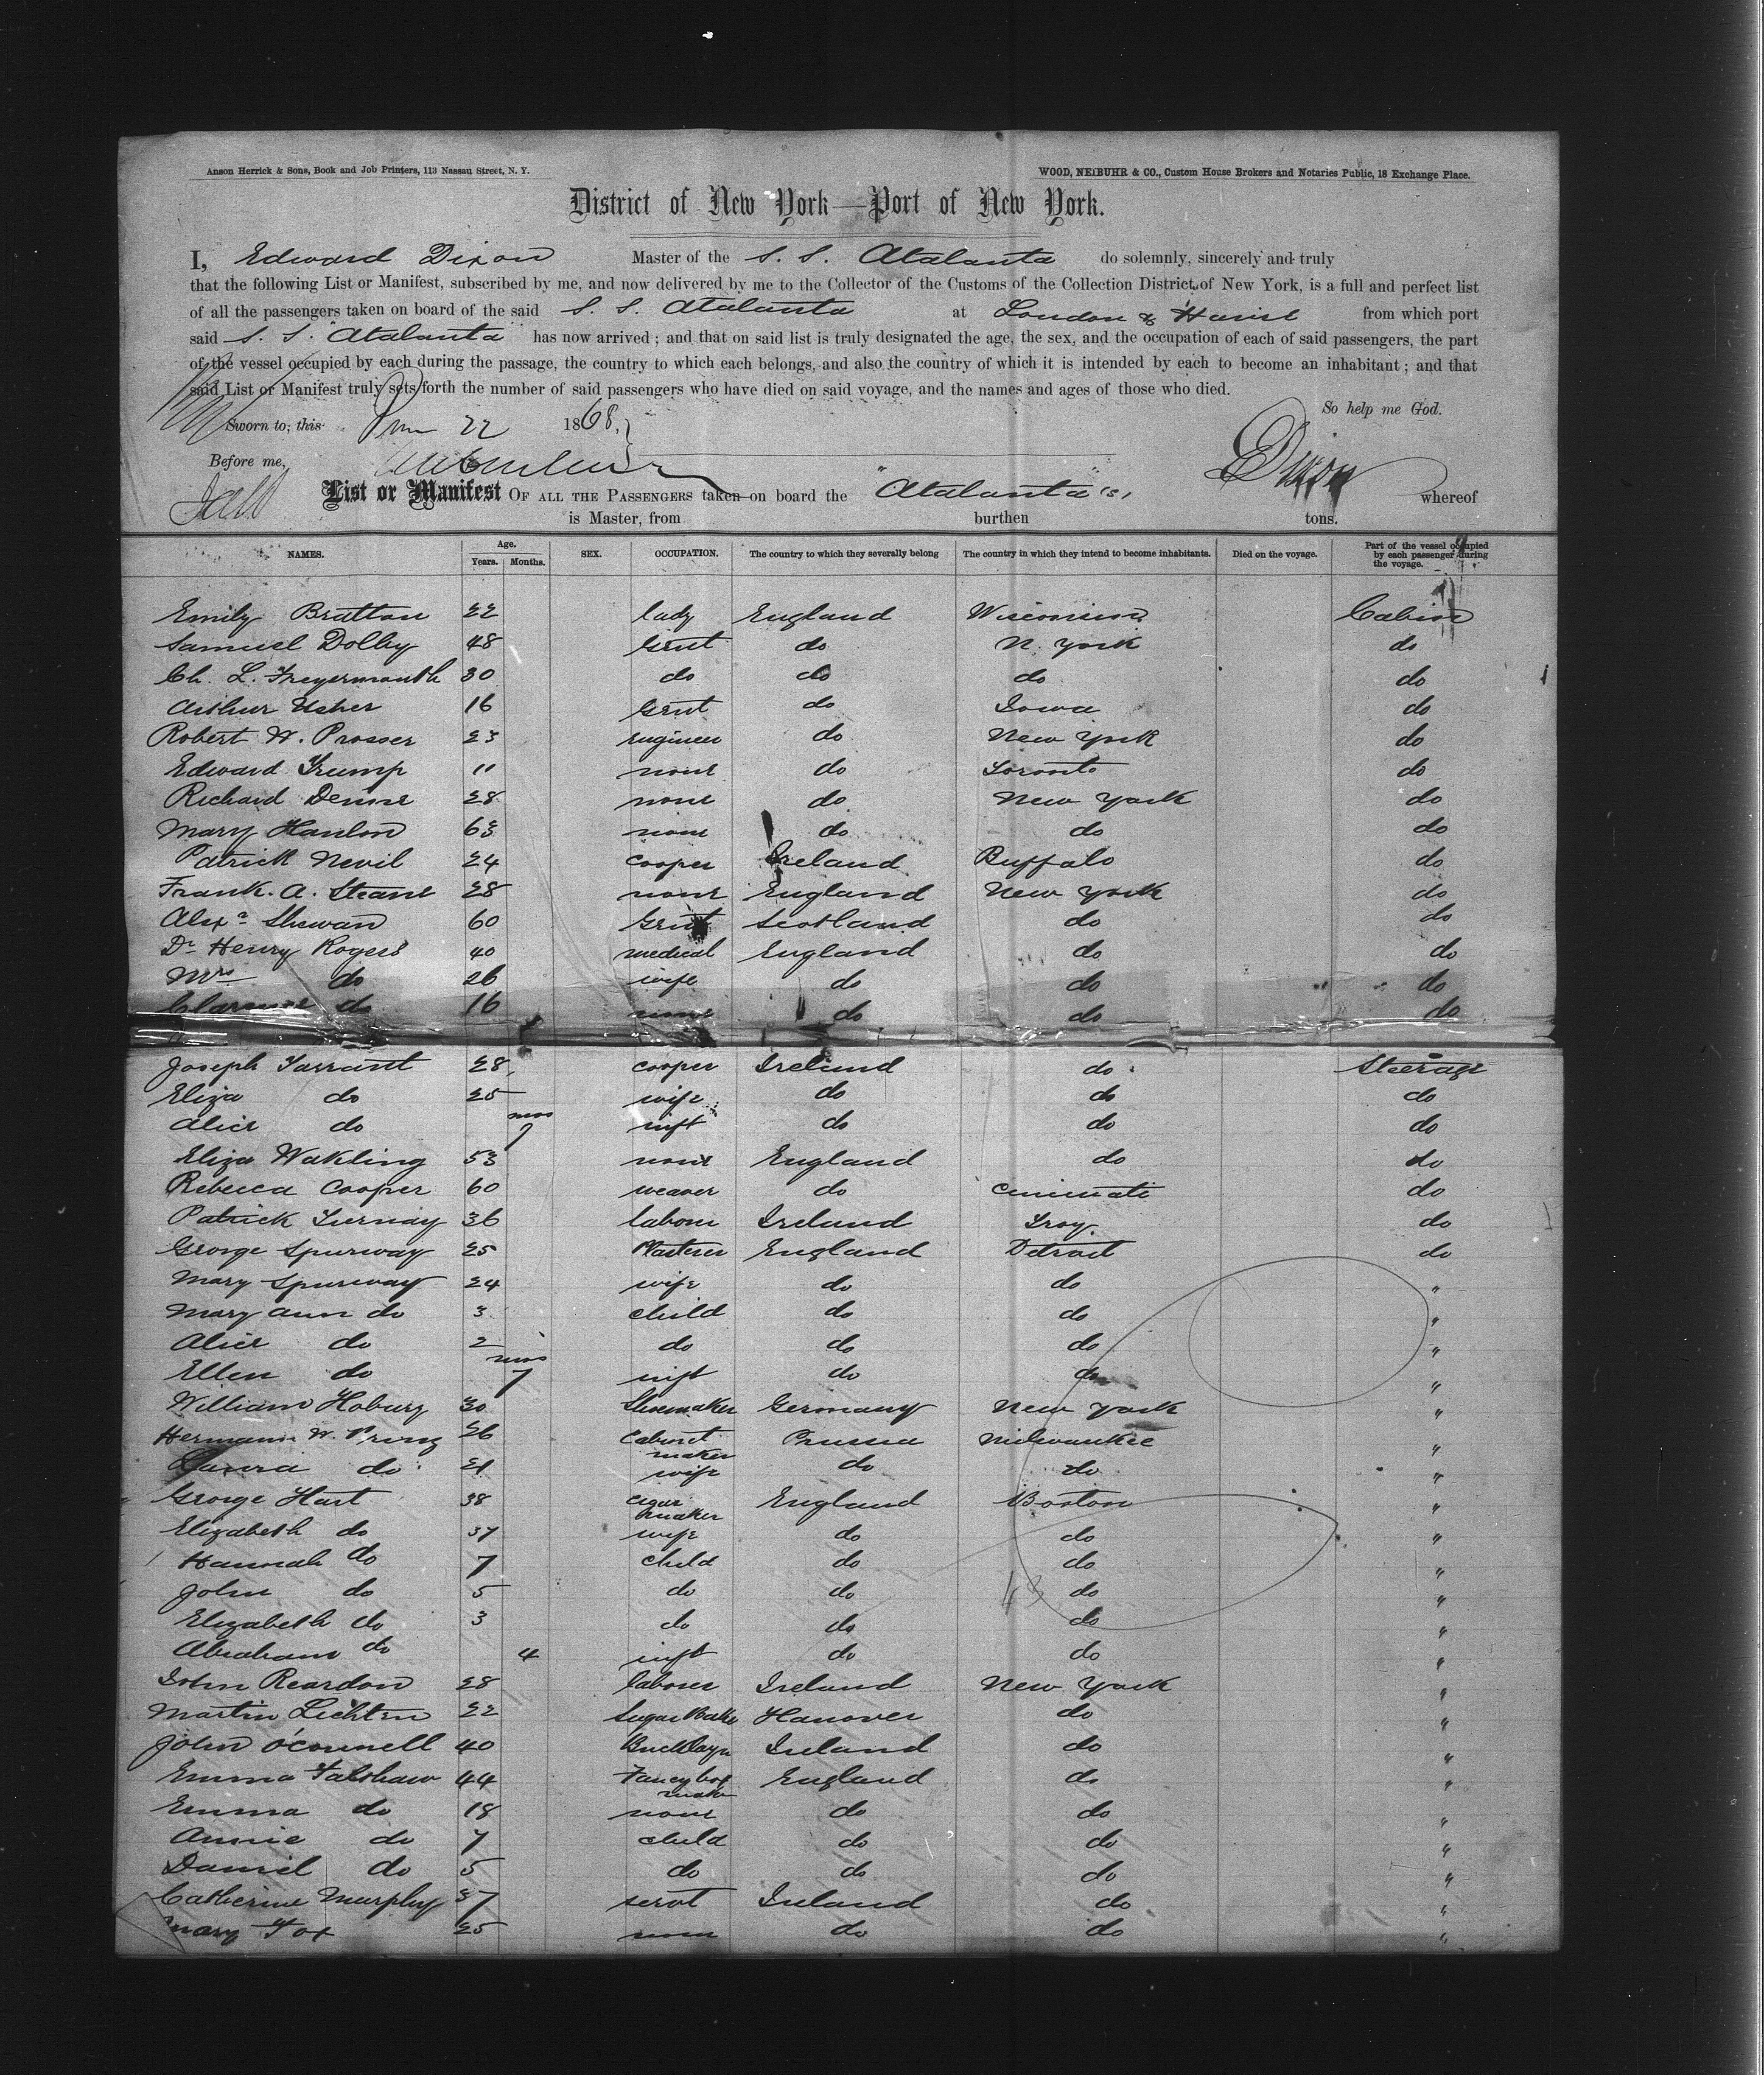 Anson Herrick & Sons, Book and Job Printers, 113 Nassau Street, N. Y.
WOOD, NEIBUHR & CO., Custom House Brokers and Notaries Public, 18 Exchange Place.
District of New York—Port of New York.
I, Edward Dixon Master of the S. S. Atalanta do solemnly, sincerely and truly
that the following List or Manifest, subscribed by me, and now delivered by me to the Collector of the Customs of the Collection District of New York, is a full and perfect list
of all the passengers taken on board of the said S. S. Atalanta at London & from which port
said S. S. Atalanta has now arrived; and that on said list is truly designated the age, the sex, and the occupation of each of said passengers, the part
of the vessel occupied by each during the passage, the country to which each belongs, and also the country of which it is intended by each to become an inhabitant; and that
said List or Manifest truly sets forth the number of said passengers who have died on said voyage, and the names and ages of those who died.
So help me God.
Sworn to, this 22 1868,
Before me,
Dixon
List or Manifest OF ALL THE PASSENGERS taken on board the "Atalanta (s)" whereof
is Master, from burthen tons.
NAMES. Age. Years. Months. SEX. OCCUPATION. The country to which they severally belong The country in which they intend to become inhabitants. Died on the voyage. Part of the vessel occupied by each passenger during the voyage.
Emily Bratton 22 lady England Wisconsin Cabin
Samuel Dolby 48 Gent do N. York do
Ch. L. Freyermouth 30 do do do do
Arthur Usher 16 Gent do Iowa do
Robert W. Prosser 23 engineer do New York do
Edward Trump 11 none do Toronto do
Richard Denne 28 none do New York do
Mary Hanlon 63 none do do do
Patrick Nevil 24 cooper Ireland Buffalo do
Frank. A. Steane 28 none England New York do
Alexr Shewan 60 Gent Scotland do do
Dr Henry Rogers 40 medical England do do
Mrs do 26 wife do do do
Clarence do 16 none do do do
Joseph Tarrant 28 cooper Ireland do Steerage
Eliza do 25 wife do do do
Alice do mos 7 inft do do do
Eliza Wakling 53 none England do do
Rebecca Cooper 60 weaver do Cincinnati do
Patrick Tiernay 36 labour Ireland Troy do
George Spurway 25 Plasterer England Detroit do
Mary Spurway 24 wife do do "
Mary Ann do 3 child do do "
Alice do 2 do do do "
Ellen do mos 7 inft do do "
William Hoburg 30 Shoemaker Germany New York "
Hermann W. Prinz 26 Cabinet maker Prussia Milwaukee "
Laura do 21 wife do do "
George Hart 38 cigar maker England Boston "
Elizabeth do 37 wife do do "
Hannah do 7 child do do "
John do 5 do do do "
Elizabeth do 3 do do do "
Abraham do 4 inft do do "
John Reardon 28 laborer Ireland New York "
Martin Lichten 22 Sugar Baker Hanover do "
John O'Connell 40 Bricklayr Ireland do "
Emma Falshaw 44 Fancy box maker England do "
Emma do 18 none do do "
Annie do 7 child do do "
Daniel do 5 do do do "
Catherine Murphy 37 servt Ireland do "
Mary Fox 25 none do do "